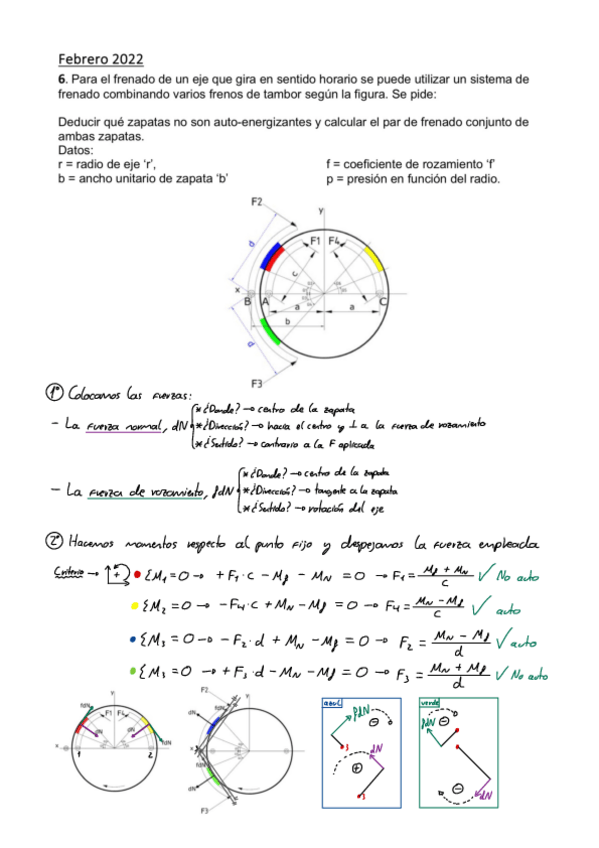 Febrero 2022
6. Para el frenado de un eje que gira en sentido horario se puede utilizar un sistema de
frenado combinando varios frenos de tambor según la figura. Se pide:
Deducir qué zapatas no son auto-energizantes y calcular el par de frenado conjunto de
ambas zapatas.
Datos:
r = radio de eje 'r',
f = coeficiente de rozamiento 'f'
b = ancho unitario de zapata 'b'
p = presión en función del radio.
F2
Y
d
F1 F4
c
x
B A C
a a
b
d
F3
1º Colocamos las fuerzas:
* ¿Donde? → centro de la zapata
- La fuerza normal, dN * ¿Dirección? → hacia el centro y ⊥ a la fuerza de rozamiento
* ¿Sentido? → contrario a la F aplicada
* ¿Donde? → centro de la zapata
- La fuerza de rozamiento, fdN * ¿Dirección? → tangente a la zapata
* ¿Sentido? → rotación del eje
2º Hacemos momentos respecto al punto fijo y despejamos la fuerza empleada
Criterio → + ΣM1 = 0 → + F1·c - Mf - MN = 0 → F1 = (Mf + MN)/c ✓ No auto
ΣM2 = 0 → - F4·c + MN - Mf = 0 → F4 = (MN - Mf)/c ✓ auto
ΣM3 = 0 → - F2·d + MN - Mf = 0 → F2 = (MN - Mf)/d ✓ auto
ΣM3 = 0 → + F3·d - MN - Mf = 0 → F3 = (MN + Mf)/d ✓ No auto
y
fdN
F1 F4
dN dN
fdN
x
1 2
F2
y
dN
fdN
x
fdN
dN
F3
azul
fdN
-
3
dN
+
3
verde
fdN
-
-
dN